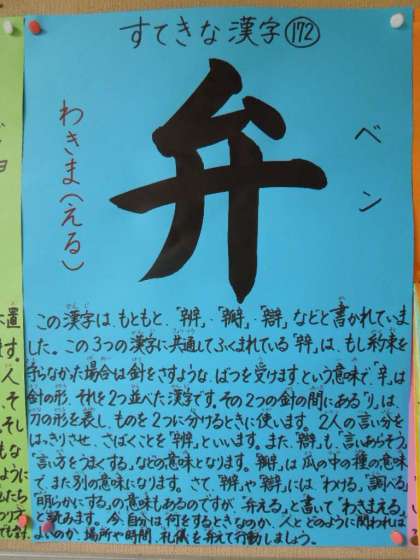 すてきな漢字172
弁
ベン
わきま(える)
この漢字は、もともと、「辨」・「瓣」・「辯」などと書かれていま
した。この3つの漢字に共通してふくまれている「辡」は、もし約束を
守らなかった場合は針をさすような、ばつを受けます。という意味で、「辛」は
針の形、それを2つ並べた漢字です。その2つの針の間にある「刂」は、
刀の形を表し、ものを2つに分けるときに使います。2人の言い分を
はっきりさせ、さばくことを「辨」といいます。また、「辯」も「言いあらそう。」
「言い方をうまくする」などの意味となります。「瓣」は、瓜の中の種の意味
で、また別の意味になります。さて、「辨」や「辯」には「わける」「調べる」
「明らかにする」の意味もあるのですが、"弁える"と書いて"わきまえる"
と読みます。今、自分は何をするときなのか、人とどのように関われば
よいのか、場所や時間、礼儀を弁えて行動しましょう。